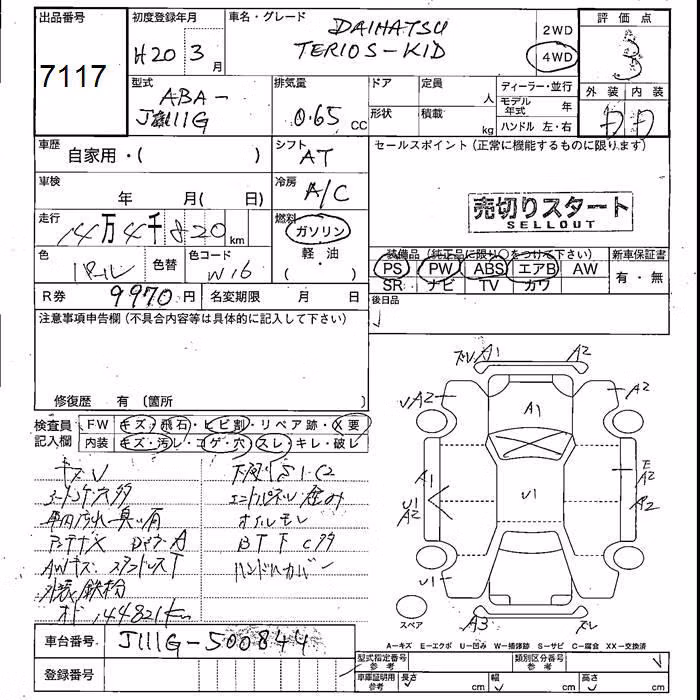 出品番号
7117
初度登録年月
H20 3月
車名・グレード
DAIHATSU
TERIOS-KID
2WD
4WD
評価点
3
外装 内装
型式
ABA-
J111G
排気量
0.65 CC
ドア
定員
人
形状
積載
kg
ディーラー・並行
モデル年式 年
ハンドル 左・右
車歴
自家用・( )
シフト
AT
セールスポイント (正常に機能するものに限ります)
車検
年 月( 日)
冷房
A/C
売切りスタート
SELLOUT
走行
14万4千820km
燃料
ガソリン
軽・油
( )
色
色替
色コード
W16
装備品 (純正品に限り○をつけて下さい)
PS PW ABS エアB AW
SR ナビ TV カワ
新車保証書
有・無
R券 9970円
名変期限 月 日
後日品
注意事項申告欄 (不具合内容等は具体的に記入して下さい)
修復歴 有 〔箇所
検査員記入欄
FW キズ・飛石・ヒビ割・リペア跡・X要
内装 キズ・汚レ・コゲ・穴・スレ・キレ・破レ
キズU
シートコゲ穴多
車内汚れ・臭い有
AWキズ
外装鉄粉
144821km
下廻りS1・C2
オイルモレ
ハンドルカバー
A1 A2
UA2 A1 A2
A1 E A2
U1 A2 U1 A2
U1
A3
スペア
A-キズ E-エクボ U-凹み W-補修跡 S-サビ C-腐食 XX-交換済
車台番号 J111G-500844
登録番号
型式指定番号 参考
類別区分番号 参考
車庫証明用 参考
長さ cm
幅 cm
高さ cm